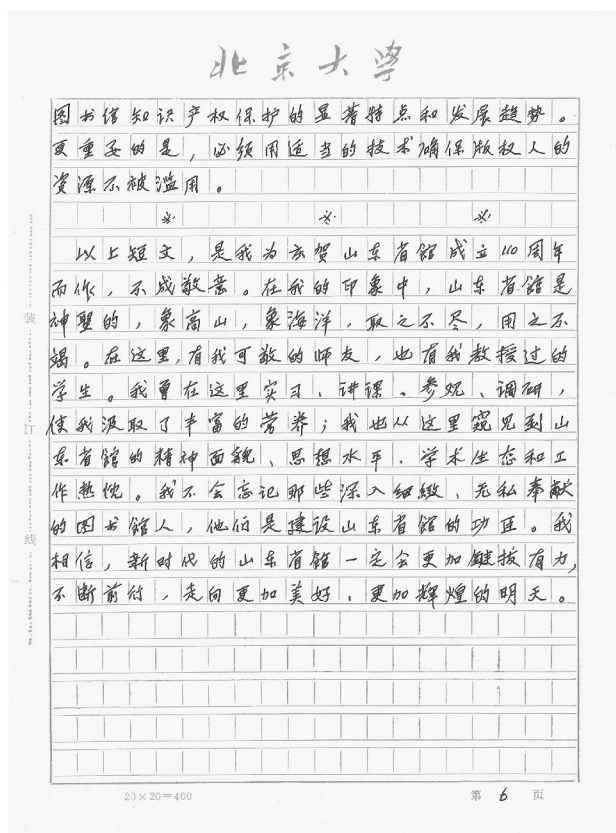 北京大学
图书馆知识产权保护的显著特点和发展趋势。
更重要的是，必须用适当的技术确保版权人的
资源不被滥用。
※ ※ ※
以上短文，是我为庆贺山东省館成立110周年
而作，不成敬意。在我的印象中，山东省館是
神聖的，象高山，象海洋，取之不尽，用之不
竭。在这里，有我可敬的师友，也有我教授过的
学生。我曾在这里实习、讲课、参观、调研，
使我汲取了丰富的营养；我也从这里窥见到山
东省館的精神面貌、思想水平、学术生态和工
作热忱。我不会忘记那些深入细緻、无私奉献
的图书館人，他们是建设山东省館的功臣。我
相信，新时代的山东省館一定会更加健拔有力，
不断前行，走向更加美好、更加辉煌的明天。
装
订
线
20×20=400
第 6 页